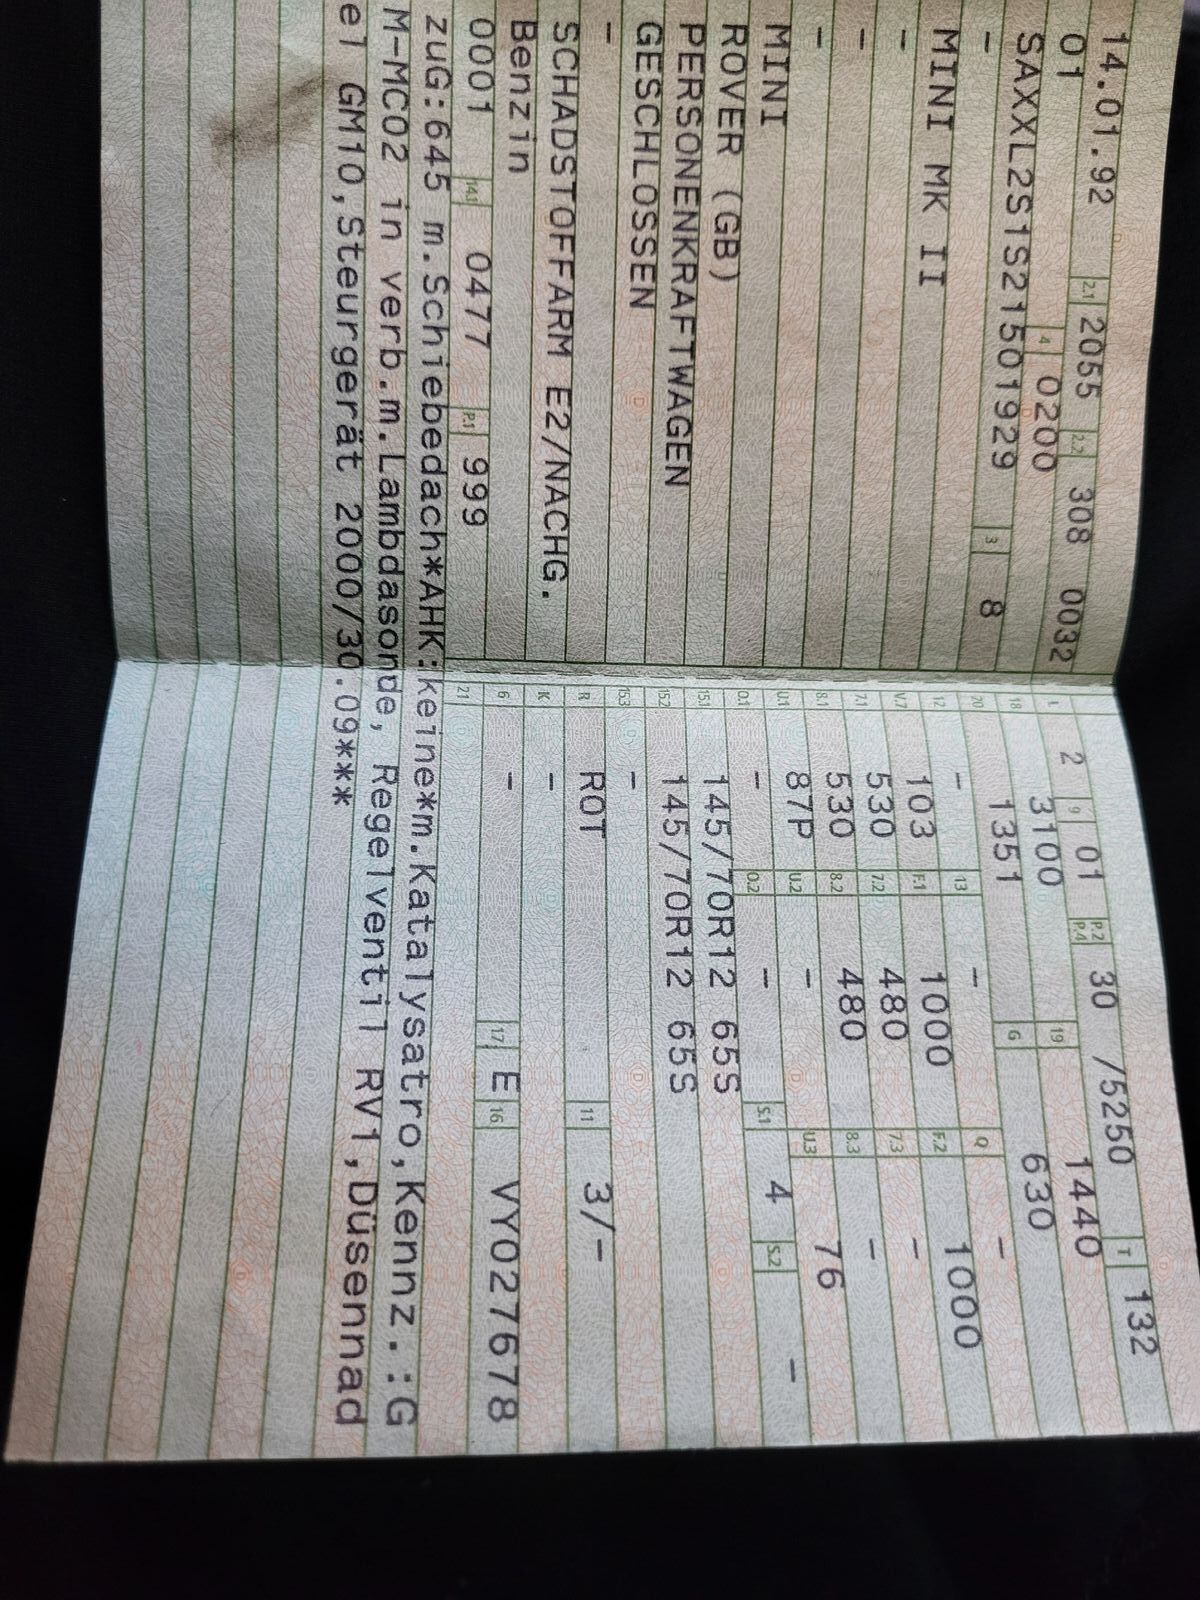 14.01.92 2.1 2055 2.2 308 0032
01 4 0200
SAXXL2S1S21501929 3 8
-
MINI MK II
-
-
-
MINI
ROVER (GB)
PERSONENKRAFTWAGEN
GESCHLOSSEN
-
SCHADSTOFFARM E2/NACHG.
Benzin
0001 14.1 0477 P.1 999
L 2 9 01 P.2 P.4 30 /5250 T 132
18 3100 19 1440
20 1351 G 630
12 - 13 - Q -
V.7 103 F.1 1000 F.2 1000
7.1 530 7.2 480 7.3 -
8.1 530 8.2 480 8.3 -
U.1 87P U.2 - U.3 76
O.1 - O.2 - S.1 4 S.2 -
15.1 145/70R12 65S
15.2 145/70R12 65S
15.3 -
R ROT 11 3/-
K -
6 - 17 E 16 VY027678
21
zuG:645 m.Schiebedach*AHK:keine*m.Katalysatro,Kennz.:G
M-MC02 in verb.m.Lambdasonde, Regelventil RV1,Düsennad
el GM10,Steurgerät 2000/30.09***